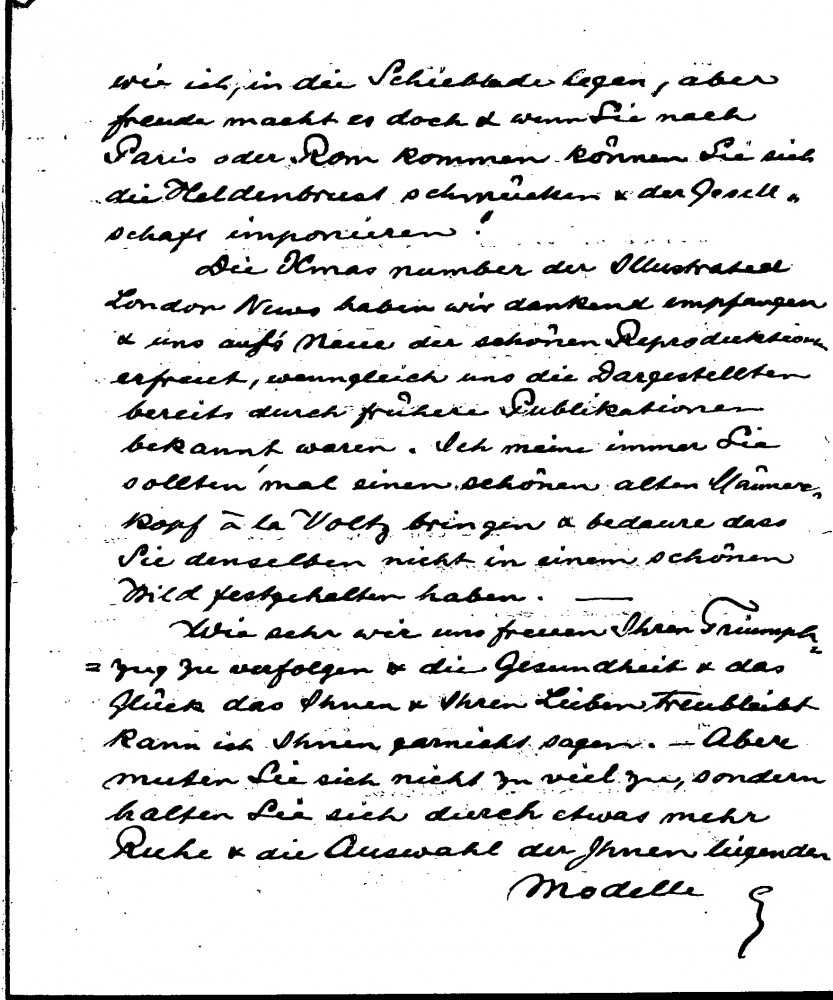 wie ich, in die Schieblade legen, aber
freude macht es doch & wenn Sie nach
Paris oder Rom kommen können Sie sich
die Heldenbrust schmücken & der Gesell-
schaft imponieren!
Die Xmas number der Illustrated
London News haben wir dankend empfangen
& uns auf's Neue der schönen Reproduktionen
erfreut, wenngleich uns die Dargestellten
bereits durch frühere Publikationen
bekannt waren. Ich meine immer Sie
sollten 'mal einen schönen alten Männer-
kopf à la Voltz bringen & bedaure dass
Sie denselben nicht in einem schönen
Bild festgehalten haben. —
Wie sehr wir uns freuen Ihren Triumph=
=zug zu verfolgen & die Gesundheit & das
Glück das Ihnen & Ihren Lieben treubleibt
kann ich Ihnen garnicht sagen. — Aber
muten Sie sich nicht zu viel zu, sondern
halten Sie sich durch etwas mehr
Ruhe & die Auswahl der Ihnen liegenden
Modelle